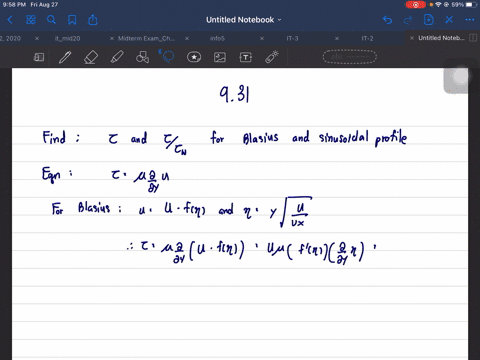 9:58 PM Fri Aug 27
59%
Untitled Notebook
2, 2020 it_mid20 Midterm Exam_Ch... info5 IT-3 IT-2 Untitled Noteb...
9.31
Find : τ and τ/τw for Blasius and sinusoidal profile
Eqn : τ = μ ∂/∂y u
For Blasius : u = U · f(η) and η = y √(U/νx)
∴ τ = μ ∂/∂y (U · f(η)) = Uμ ( f'(η) ) ( ∂/∂y η ) =